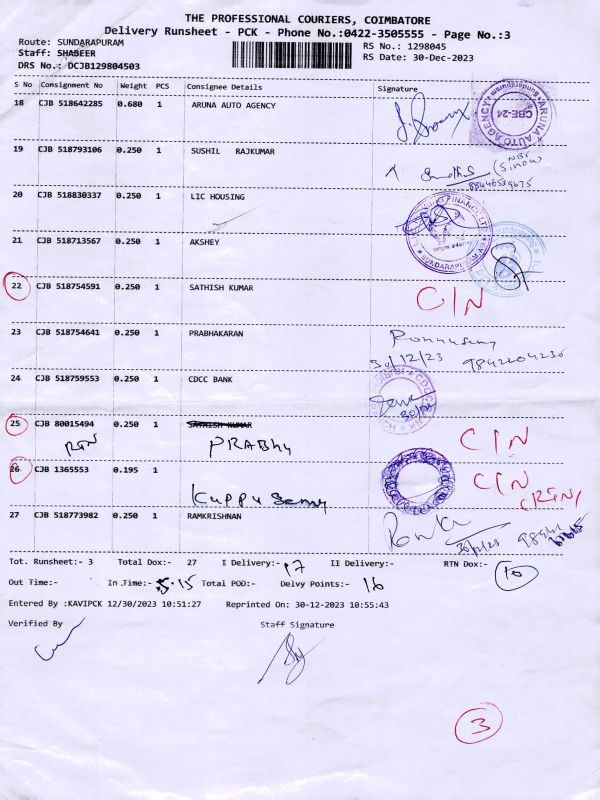 THE PROFESSIONAL COURIERS, COIMBATORE
Delivery Runsheet - PCK - Phone No.:0422-3505555 - Page No.:3
Route: SUNDARAPURAM RS No.: 1298045
Staff: SHASEER RS Date: 30-Dec-2023
DRS No.: DCJB129804503
S No Consignment No Weight PCS Consignee Details Signature
18 CJB 518642285 0.680 1 ARUNA AUTO AGENCY
ARUNA AUTO AGENCY
CBE-24
19 CJB 518793106 0.250 1 SUSHIL RAJKUMAR
20 CJB 518830337 0.250 1 LIC HOUSING
21 CJB 518713567 0.250 1 AKSHEY
22 CJB 518754591 0.250 1 SATHISH KUMAR C/N
23 CJB 518754641 0.250 1 PRABHAKARAN
30/12/23
24 CJB 518759553 0.250 1 CDCC BANK
25 CJB 80015494 0.250 1 SATHISH KUMAR C/N
RTN PRABHU
26 CJB 1365553 0.195 1 C/N
Kuppu Samy (RTN)
27 CJB 518773982 0.250 1 RAMKRISHNAN
Tot. Runsheet:- 3 Total Dox:- 27 I Delivery:- 17 II Delivery:- RTN Dox:- 10
Out Time:- In Time:- 5.15 Total POD:- Delvy Points:- 16
Entered By :KAVIPCK 12/30/2023 10:51:27 Reprinted On: 30-12-2023 10:55:43
Verified By Staff Signature
3